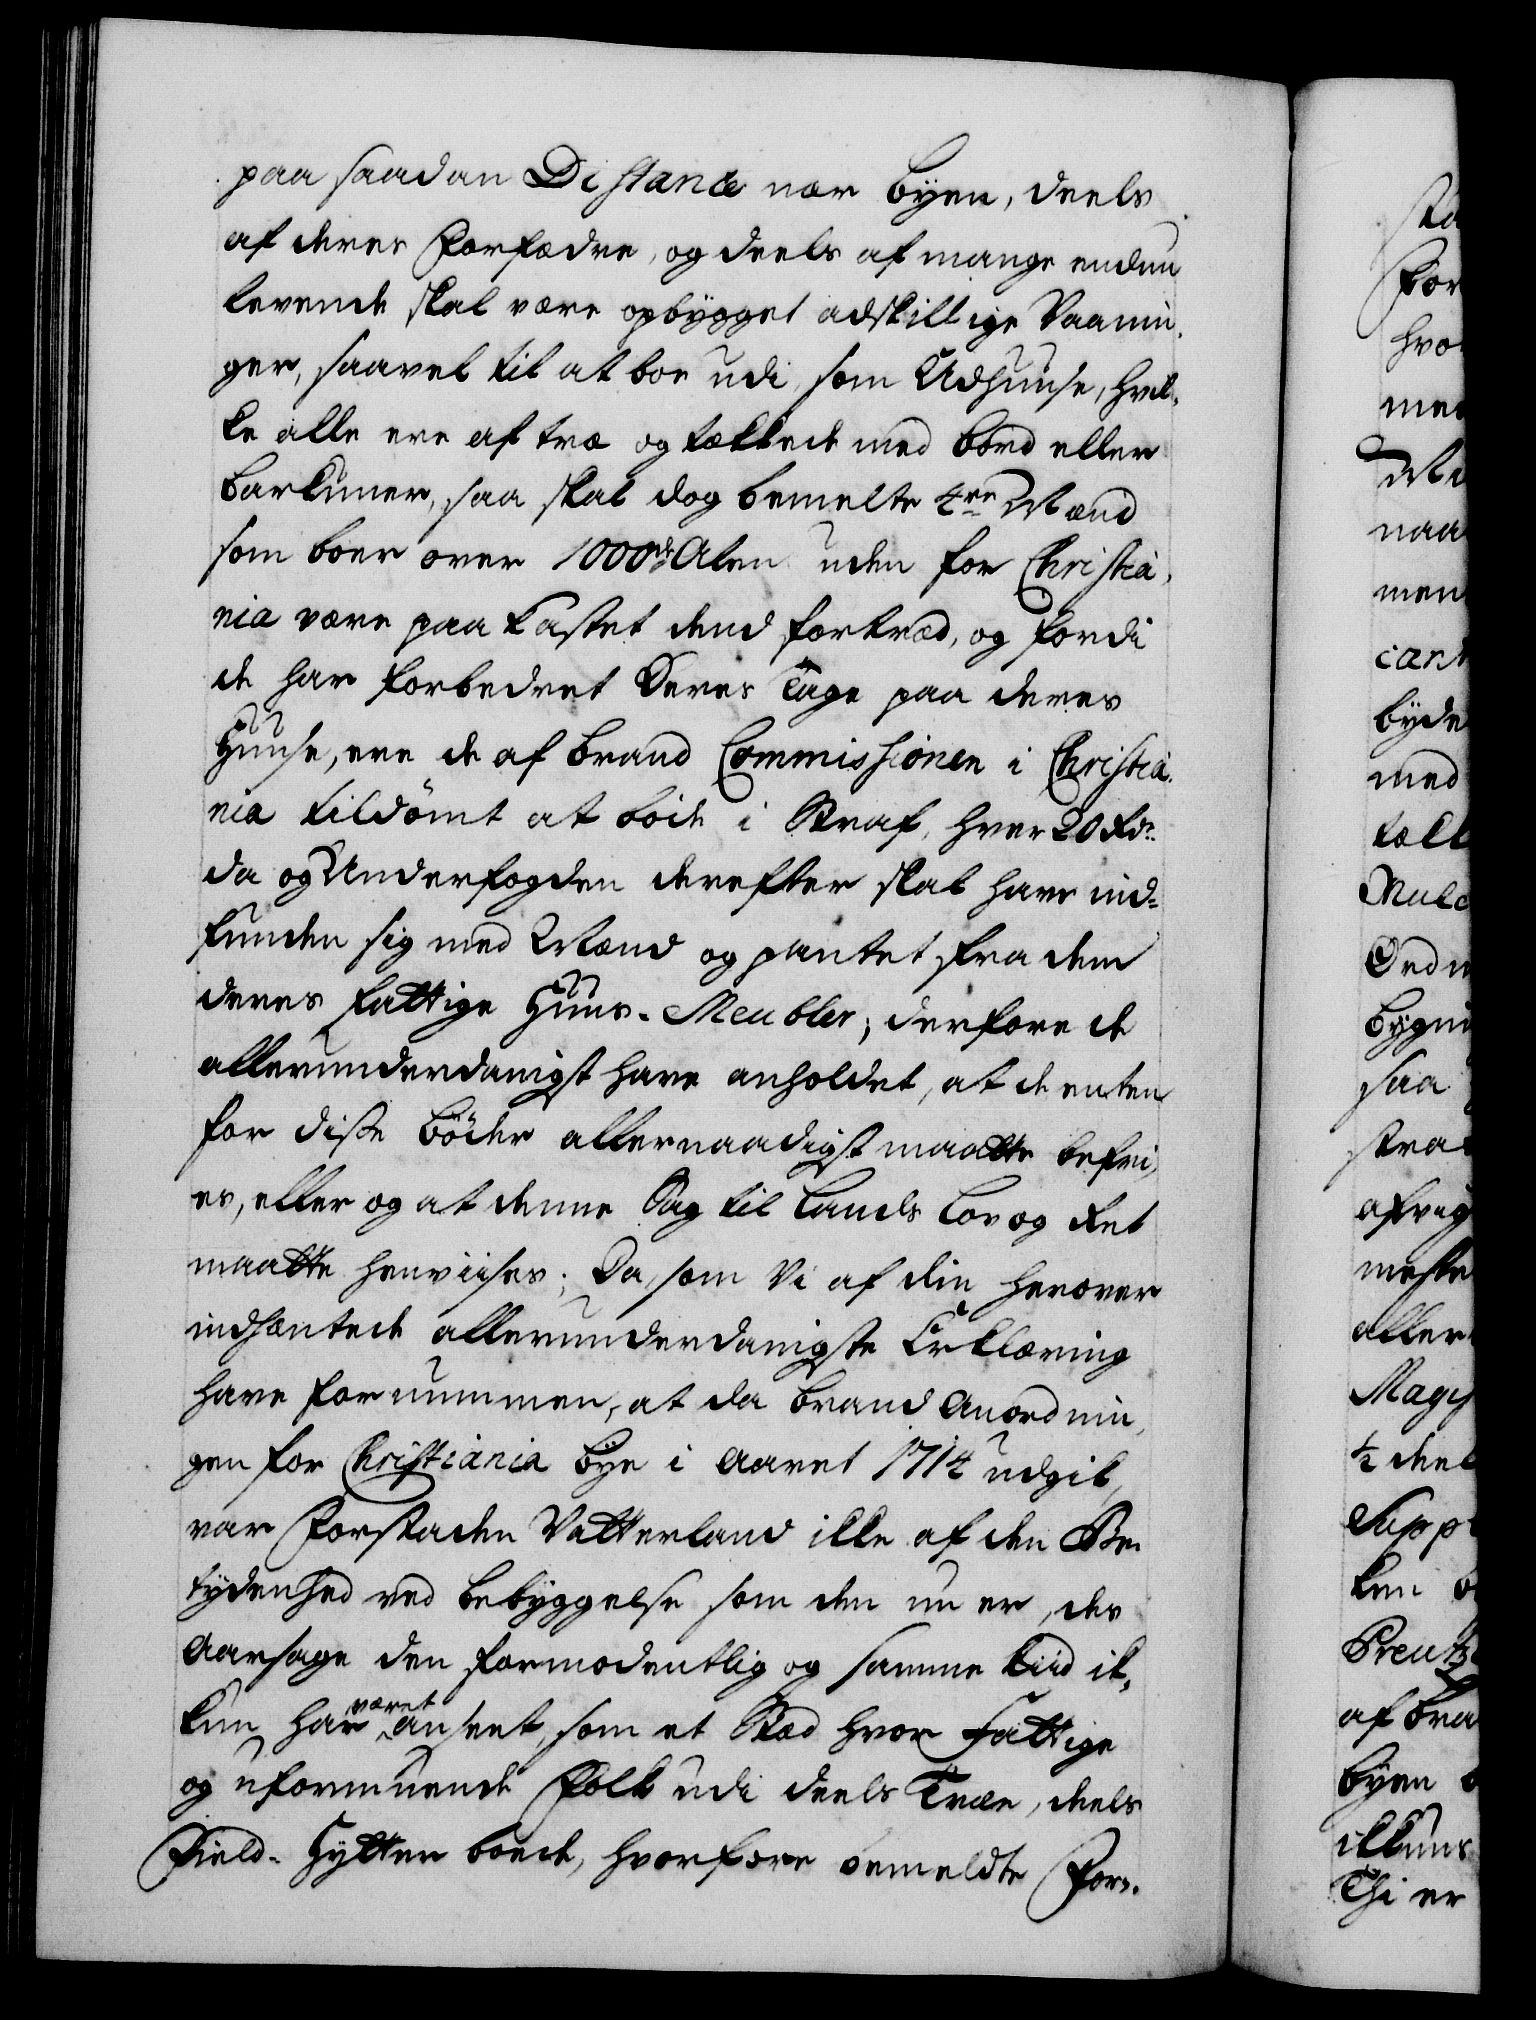 paa saadan Distance nær Byen, deels
af deres Forfædre, og deels af mange enduu
levende skal være opbÿgget adskillige Vaanin,
ger, saavel til at boe udi, som Udhuuse, hvil,
ke alle ere af træ og tækkede med bord eller
Barkuner, saa skal dog bemelte 4re Mænd
som boer over 1000de Alen uden for Christia,
nia være paa kastet dend fortræd, og fordi
de har forbedret Deres Tage paa deres
Huuse, ere de af Brand Commissionen i Christia,
nia tildömt at bode i Straf, hver 20 Rdr.
da og Underfogden derefter skal have ind-
funden sig med Mænd og pantet fra dem
deres fattige Huus-Meubler; derfore de
allerunderdanigst have anholdet, at de enten
for disse Böder allernaadigst maatte befri,
es, eller og at denne Sag til Lands Lov og Ret
maatte henviises; Da, som Vi af din herover
indhæntede allerunderdanigste Erklæring
have fornummen, at da Brand Anordnin,
gen for Christiania Bye i Aaret 1714 udgik,
var Forstaden Vatterland ikke af den Be-
tydenhed ved bebyggelse som den nu er, des
Aarsage den formodentlig og samme tiid ik,
kun har været anseet, som et Stæd hvor Fattige
og uformuende Folk udi deels Træe, deels
Field-Hytter boede, hvorfore bemeldte For-
stæ
For
hvo
med
Ma
naa
men
cant
byde
med
tæk
Mulc
Ordn
Bygni
saa
stra
afvig
meste
aller
Magis
½ deel
Supp
ken
Preutz
af Bra
Byen
ikkuns
Thi er